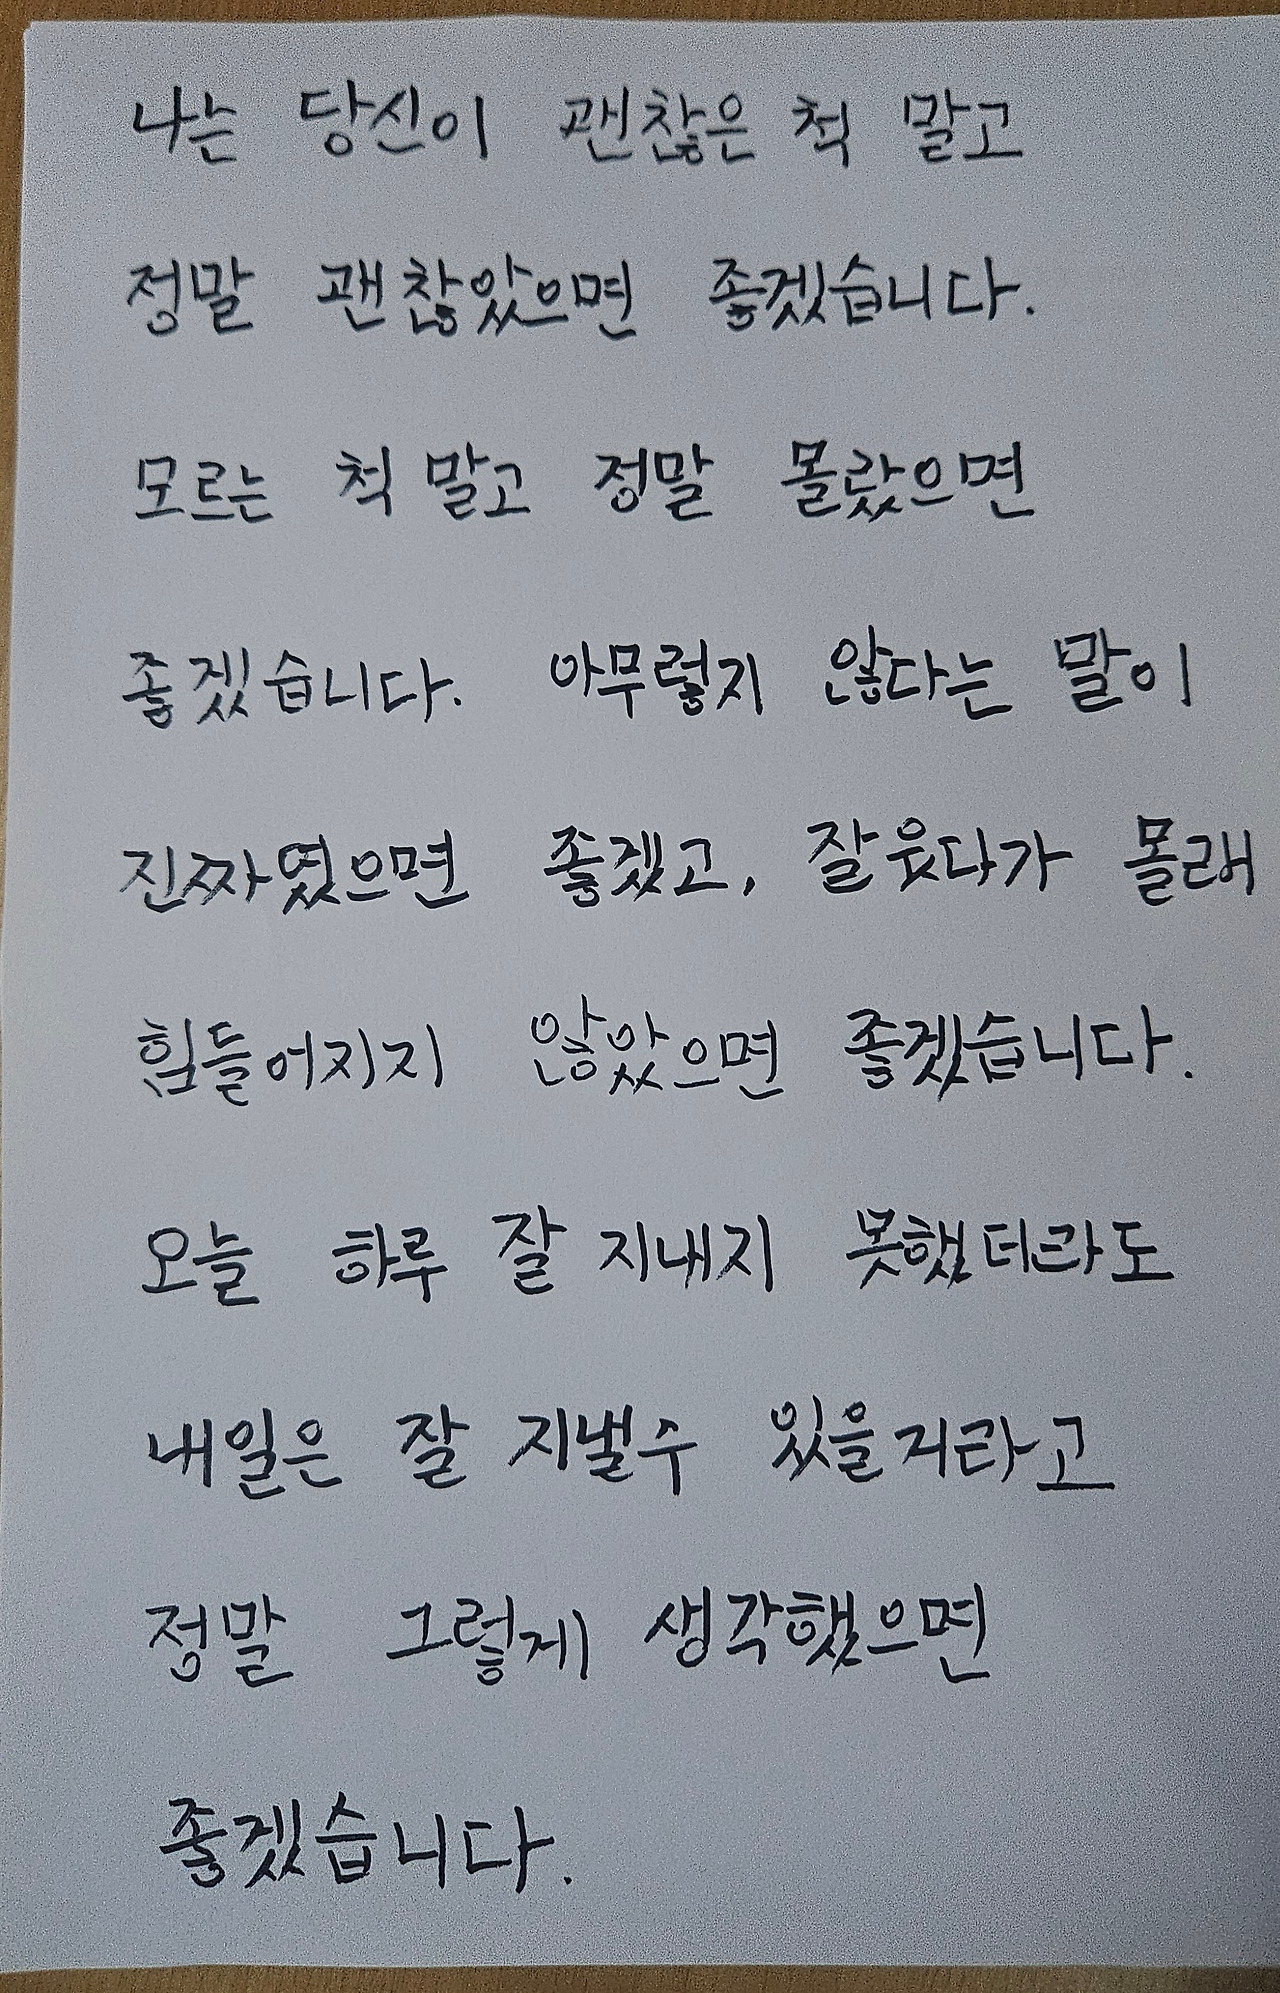 나는 당신이 괜찮은 척 말고
정말 괜찮았으면 좋겠습니다.
모르는 척 말고 정말 몰랐으면
좋겠습니다. 아무렇지 않다는 말이
진짜였으면 좋겠고, 잘 웃다가 몰래
힘들어지지 않았으면 좋겠습니다.
오늘 하루 잘 지내지 못했더라도
내일은 잘 지낼수 있을거라고
정말 그렇게 생각했으면
좋겠습니다.